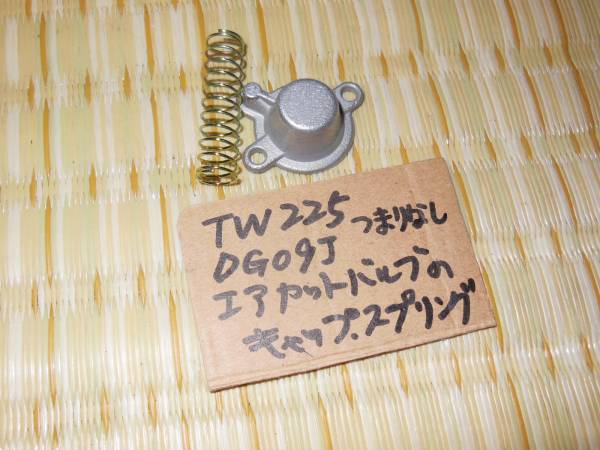 TW225 つまりなし
DG09J
エアカットバルブの
キャップ.スプリング